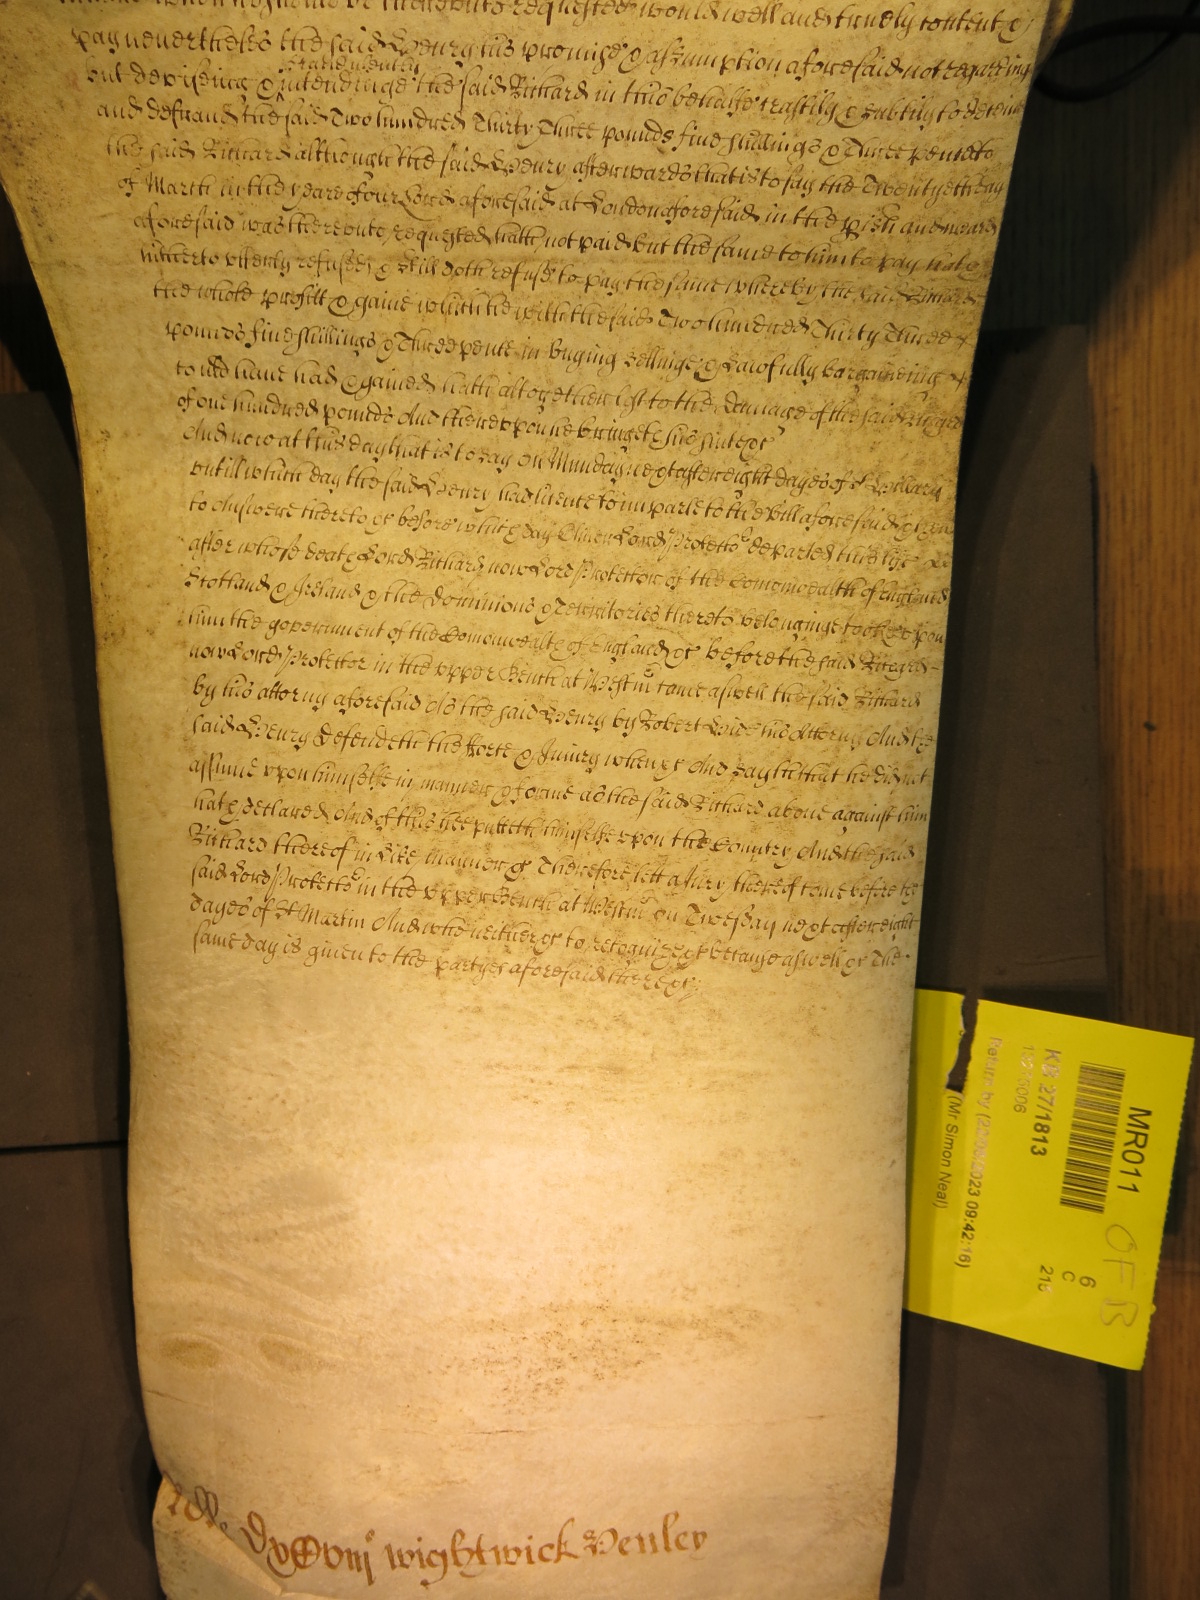 when he should be thereunto requested would well and truely content &
pay nevertheles the said Henry his promise & assumption aforesaid not regarding
but devising & intendinge fraudulently the said Richard in this behalfe craftily & subtily to deceive
and defraud the said Two hundred Thirty Three pounds five shillings & Three pence to
the said Richard although the said Henry afterwards that is to say the Twentyeth day
of March in the yeare of our Lord aforesaid at London aforesaid in the pish and ward
aforesaid was thereunto requested hath not paid but the same to him to pay hath
hitherto utterly refused & still doth refuse to pay the same whereby the said Richard
the whole profitt & gaine which he with the said Two hundred Thirty Three
pounds five shillings & Three pence in buying selling & Lawfully bargaineing
could have had & gained hath altogether lost to the damage of the said Richard
of one hundred pounds And thereuppon he bringeth his suite &c
And now at this day that is to say on Munday next after eight dayes of St Hillary
untill which day the said Henry had licence to imparle to the bill aforesaid & then
to Answere thereto &c before which day Oliver Lord Protector departed this life
after whose death Lord Richard now Lord Protector of the Comonwealth of England
Scotland & Ireland & the Dominions & Territories thereto belonginge tooke upon
him the government of the Comonwealth of England &c before the said Richard
now Lord Protector in the upper Bench at Westm came aswell the said Richard
by his attorny aforesaid As the said Henry by Robert his Attorny And the
said Henry Defendeth the fforce & Injury when &c And saith that he did not
assume upon himselfe in manner & forme as the said Richard above against him
hath declared And of this hee putteth himselfe upon the Country And the said
Richard thereof in like manner &c Therefore lett a Jury thereof come before the
said Lord Protector in the upper Bench at Westm on Twesday next after eight
dayes of St Martin And who neither &c to recognize &c because aswell &c The
same day is given to the partyes aforesaid there &c
wightwick Henley
MR011
KB 27/1813
6
C
OFB
Return by
2023 09:42:16)
(Mr Simon Neal)